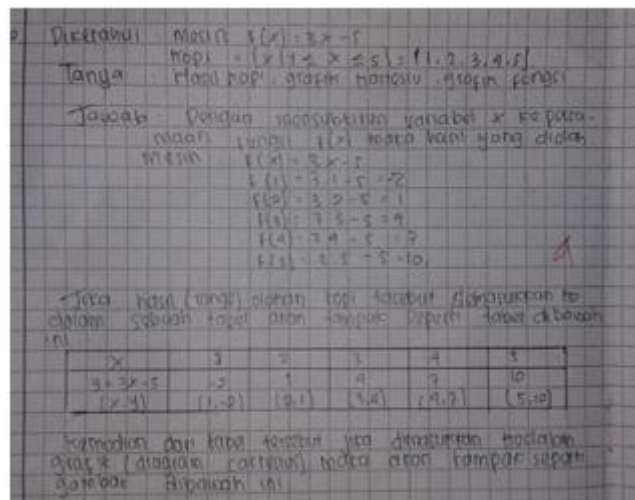 Diketahui mesin f(x) = 3x - 5
kopi = {x | 1 ≤ x ≤ 5} = {1, 2, 3, 4, 5}
Tanya : Hasil kopi, grafik kartesius, grafik fungsi
Jawab : Dengan mensubtitusi variabel x ke persa-
maan fungsi f(x) maka hasil yang didap
mesin f(x) = 3x - 5
f(1) = 3.1 - 5 = -2
f(2) = 3.2 - 5 = 1
f(3) = 3.3 - 5 = 4
f(4) = 3.4 - 5 = 7
f(5) = 3.5 - 5 = 10
Jika hasil (fungsi) olahan kopi tersebut dimasukkan ke
dalam sebuah tabel akan tampak seperti tabel dibawah
ini
x 1 2 3 4 5
y = 3x - 5 -2 1 4 7 10
(x,y) (1,-2) (2,1) (3,4) (4,7) (5,10)
kemudian dari tabel tersebut jika dimasukkan kedalam
grafik (diagram cartesius) maka akan tampak seperti
gambar dibawah ini